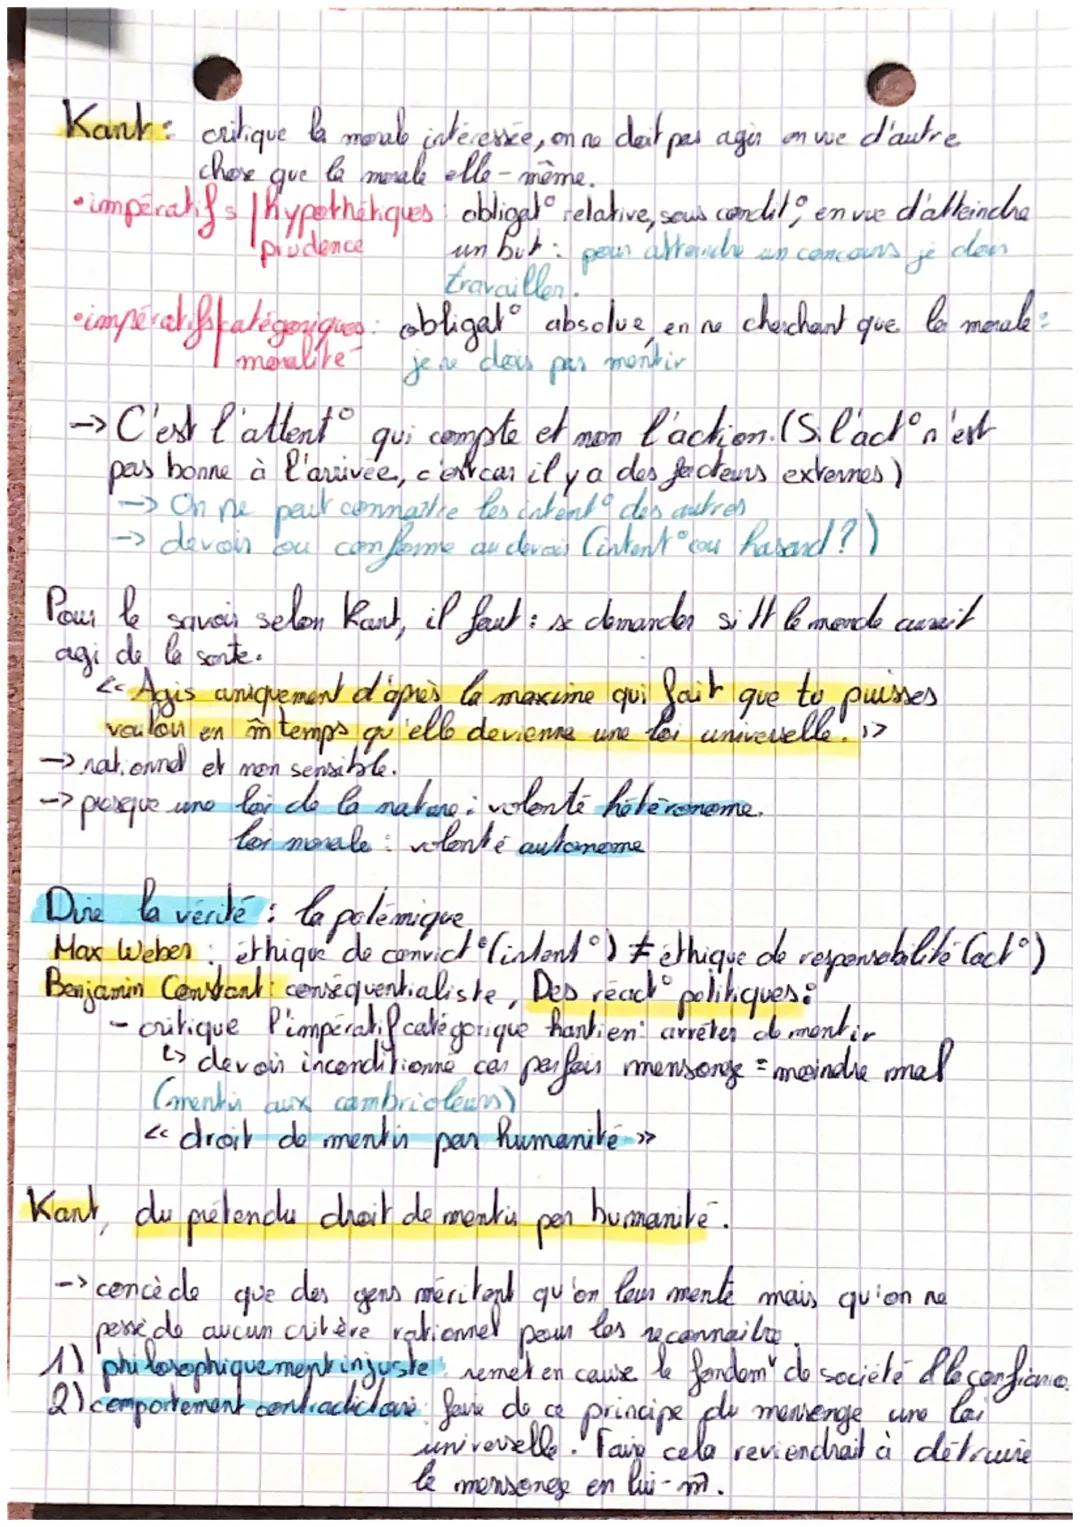 Kant : critique la morale intéressée, on ne doit pas agir en vue d'autre
chose que la morale elle-même.
• impératifs | hypothétiques : obligat° relative, sous condit°, en vue d'atteindre
prudence un but : pour atteindre un concours je dois
travailler.
• impératifs catégoriques : obligat° absolue, en ne cherchant que la morale :
moralité je ne dois pas mentir
-> C'est l'attent° qui compte et non l'action. (Si l'act° n'est
pas bonne à l'arrivée, c'est car il y a des facteurs externes)
-> On ne peut connaître les intent° des autres
-> devoir ou conforme au devoir (intent° ou hasard ?)
Pour le savoir selon Kant, il faut : se demander si tt le monde aurait
agi de la sorte.
<< Agis uniquement d'après la maxime qui fait que tu puisses
vouloir en m̂ temps qu'elle devienne une loi universelle. >>
-> rationnel et non sensible.
-> presque une loi de la nature : volonté hétéronome.
loi morale : volonté autonome
Dire la vérité : la polémique
Max Weber : éthique de convict° (intent°) ≠ éthique de responsabilité (act°)
Benjamin Constant : conséquentialiste, Des réact° politiques :
- critique l'impératif catégorique kantien : arrêter de mentir
↳ devoir inconditionné car parfois mensonge = moindre mal
(mentir aux cambrioleurs)
<< droit de mentir par humanité >>
Kant, du prétendu droit de mentir par humanité.
-> concède que des gens méritent qu'on leur mente mais qu'on ne
possède aucun critère rationnel pour les reconnaître.
1) philosophiquement injuste : remet en cause le fondemt de société & la confiance.
2) comportement contradictoire : faire de ce principe du mensonge une loi
universelle. Faire cela reviendrait à détruire
le mensonge en lui-m̂.